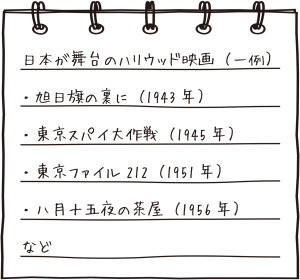 日本が舞台のハリウッド映画（一例）
・旭日旗の裏に（1943年）
・東京スパイ大作戦（1945年）
・東京ファイル212（1951年）
・八月十五夜の茶屋（1956年）
など